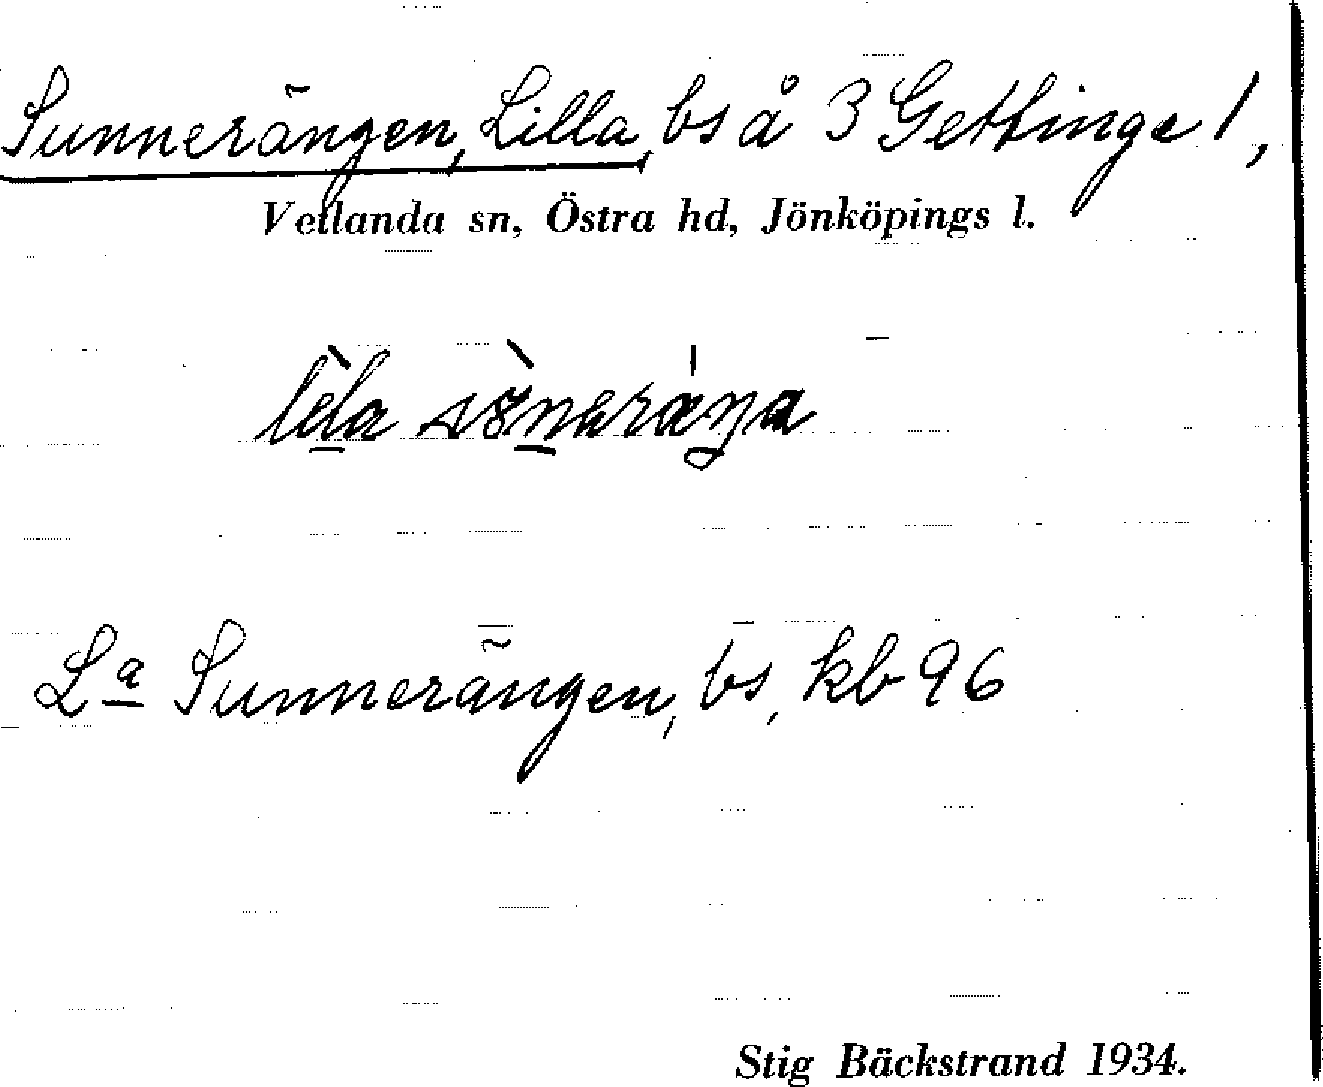 Sunnerängen, Lilla, bs å 3 Gettinge 1,
Vetlanda sn, Östra hd, Jönköpings l.
La Sunnerängen, bs, kb 96
Stig Bäckstrand 1934.